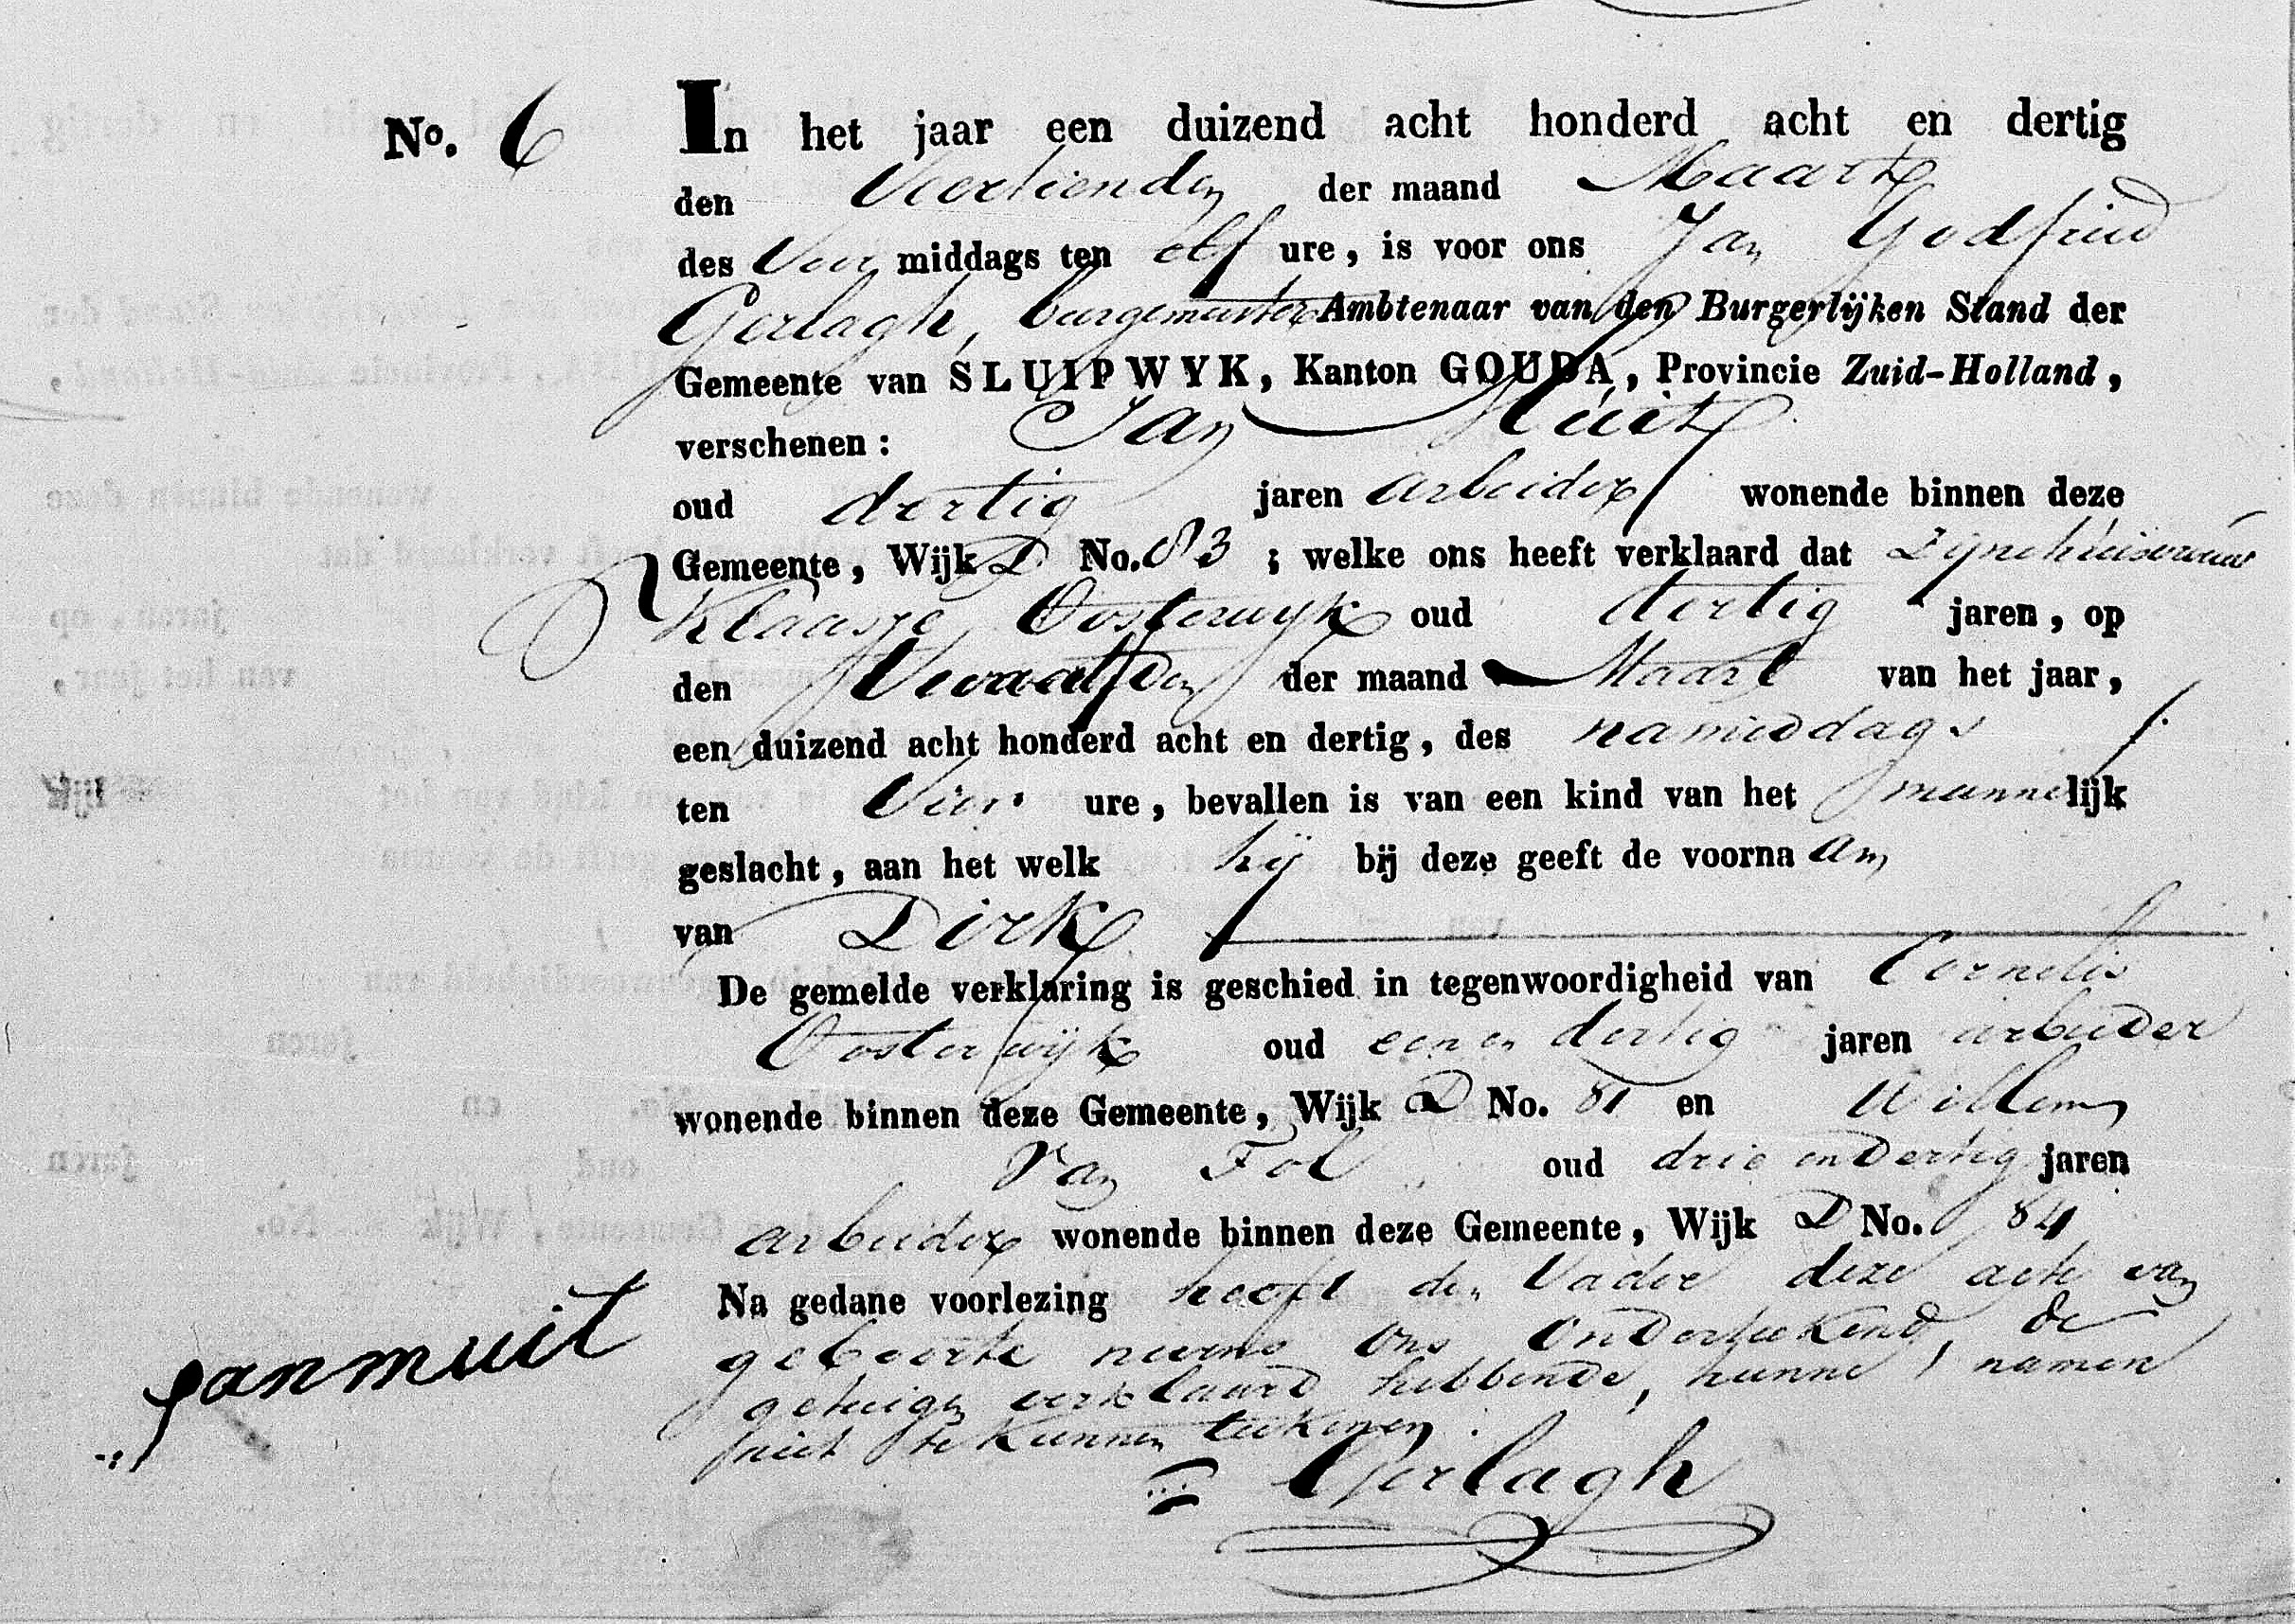 No. 6
In het jaar een duizend acht honderd acht en dertig
den Veertienden der maand Maart
des Voor middags ten elf ure, is voor ons Jan Godfried
Gerlagh, burgemeester Ambtenaar van den Burgerlijken Stand der
Gemeente van SLUIPWYK, Kanton GOUDA, Provincie Zuid-Holland,
verschenen: Jan Muit
oud dertig jaren arbeider wonende binnen deze
Gemeente, Wijk D No. 83; welke ons heeft verklaard dat Zijne huisvrouw
Klaasje Oosterwyk oud dertig jaren, op
den Twaalfden der maand Maart van het jaar,
een duizend acht honderd acht en dertig, des namiddags
ten Vier ure, bevallen is van een kind van het mannelijk
geslacht, aan het welk hij bij deze geeft de voornaam
van Dirk
De gemelde verklaring is geschied in tegenwoordigheid van Cornelis
Oosterwijk oud een en dertig jaren arbeider
wonende binnen deze Gemeente, Wijk D No. 81 en Willem
Van Tol oud drie en dertig jaren
arbeider wonende binnen deze Gemeente, Wijk D No. 84
Na gedane voorlezing heeft den Vader deze acte van
geboorte nevens ons onderteekend, de
getuigen verklaard hebbende, hunne namen
niet te kunnen teekenen.
Jan muit
Gerlagh